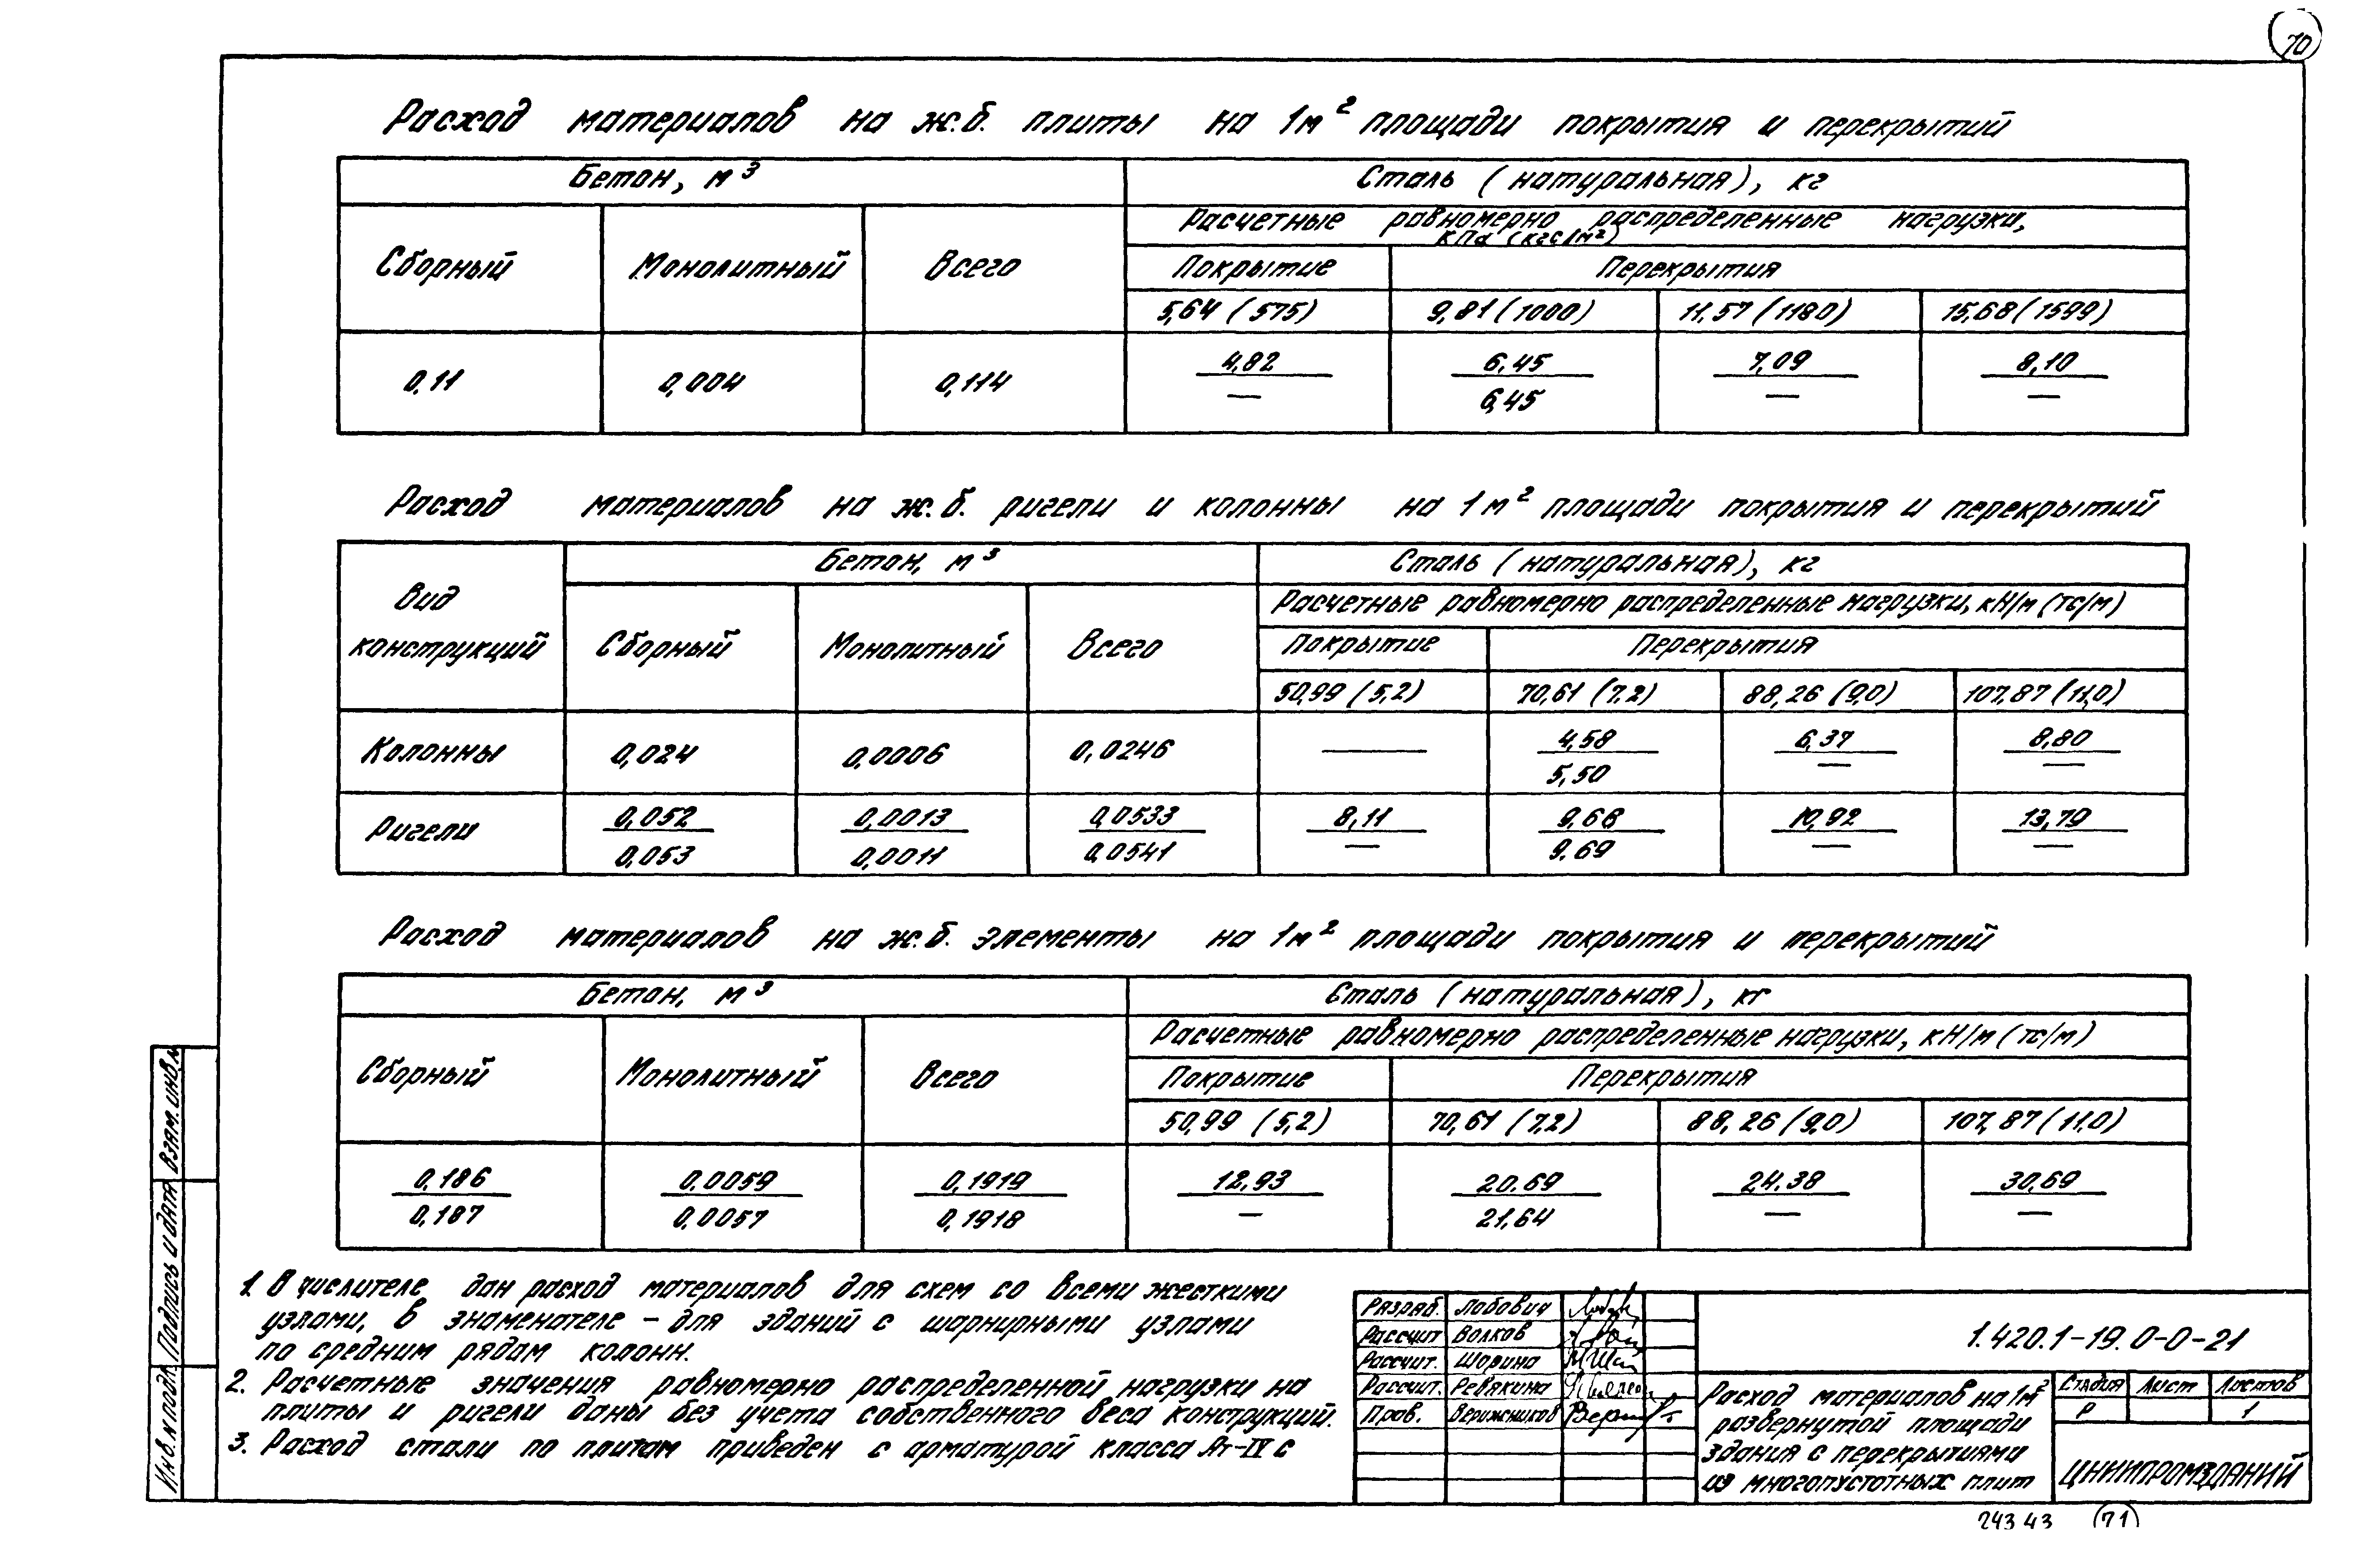 70
Расход материалов на ж.б. плиты на 1м² площади покрытия и перекрытий
Бетон, м³
Сталь (натуральная), кг
Сборный
Монолитный
Всего
Расчетные равномерно распределенные нагрузки,
кПа (кгс/м²)
Покрытие
Перекрытия
5,64 (575)
9,81 (1000)
11,57 (1180)
15,68 (1599)
0,11
0,004
0,114
4,82
—
6,45
6,45
7,09
—
8,10
—
Расход материалов на ж.б. ригели и колонны на 1м² площади покрытия и перекрытий
Вид
конструкций
Бетон, м³
Сталь (натуральная), кг
Сборный
Монолитный
Всего
Расчетные равномерно распределенные нагрузки, кН/м (тс/м)
Покрытие
Перекрытия
50,99 (5,2)
70,61 (7,2)
88,26 (9,0)
107,87 (11,0)
Колонны
0,024
0,0006
0,0246
—
4,58
5,50
6,37
—
8,80
—
Ригели
0,052
0,053
0,0013
0,0011
0,0533
0,0541
8,11
—
9,66
9.69
10,92
—
13,79
—
Расход материалов на ж.б. элементы на 1м² площади покрытия и перекрытий
Бетон, м³
Сталь (натуральная), кг
Сборный
Монолитный
Всего
Расчетные равномерно распределенные нагрузки, кН/м (тс/м)
Покрытие
Перекрытия
50,99 (5,2)
70,61 (7,2)
88,26 (9,0)
107,87 (11.0)
0,186
0,187
0.0059
0,0057
0,1919
0,1918
12.93
—
20.69
21,64
24.38
—
30,69
—
1. В числителе дан расход материалов для схем со всеми жесткими
узлами, в знаменателе – для зданий с шарнирными узлами
по средним рядам колонн.
2. Расчетные значения равномерно распределенной нагрузки на
плиты и ригели даны без учета собственного веса конструкций.
3. Расход стали по плитам приведен с арматурой класса Ат-IV с
Разраб. Лабович
Рассчит Волков
Рассчит. Шорина
Рассчит. Ревякина
Пров. Верижников
1.420.1-19. 0-0-21
Расход материалов на 1м²
развернутой площади
здания с перекрытиями
из многопустотных плит
Стадия Лист Листов
Р 1
ЦНИИПРОМЗДАНИЙ
Инв.№ подл. Подпись и дата Взам. инв.№
24343 71